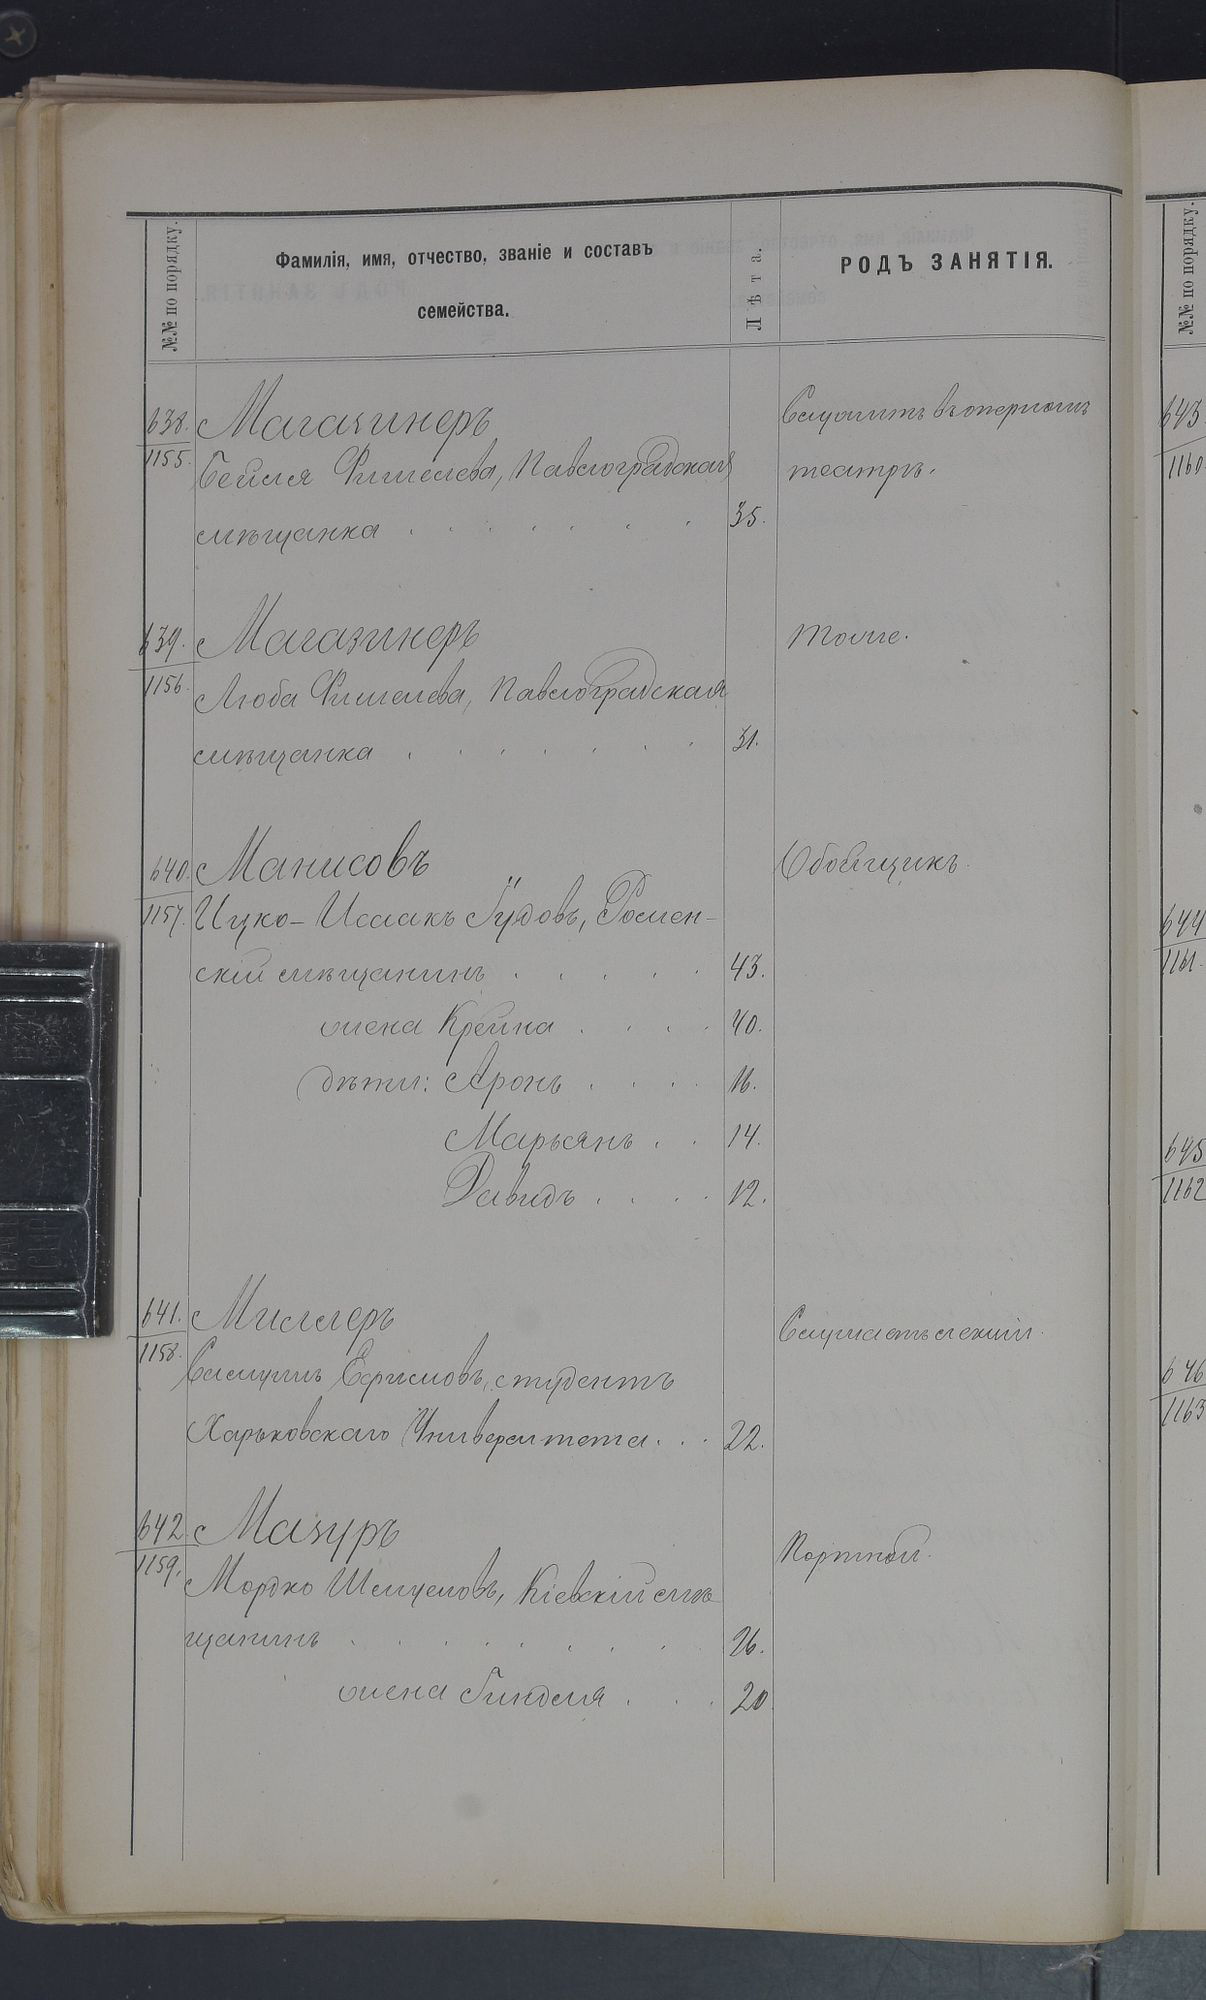 №№ по порядку.
Фамилія, имя, отчество, званіе и составъ
семейства.
Лѣта.
РОДЪ ЗАНЯТІЯ.
638.
1155.
Магазинеръ
Бейля Фишелева, Павлоградская
мѣщанка . . . . . . . 35.
Служитъ въ оперномъ
театрѣ.
639.
1156.
Магазинеръ
Люба Фишелева, Павлоградская
мѣщанка . . . . . . . 31.
Тоже.
640.
1157.
Манисовъ
Ицко-Исаакъ Гудовъ, Ромен-
скій мѣщанинъ . . . . . 43.
жена Крейна . . . . 40.
дѣти: Аронъ . . . . 16.
Марьянъ . . 14.
Давидъ . . . . 12.
Обойщикъ.
641.
1158.
Миллеръ
Самуилъ Ефимовъ, студентъ
Харьковскаго Университета . . . 22.
Слушаетъ лекціи.
642.
1159.
Мазуръ
Мордко Шмулевъ, Кіевскій мѣ
щанинъ . . . . . . . . 26.
жена Гинделя . . . 20.
Портной.
№№ по порядку.
643
1160
644
1161.
645
1162
646
1163